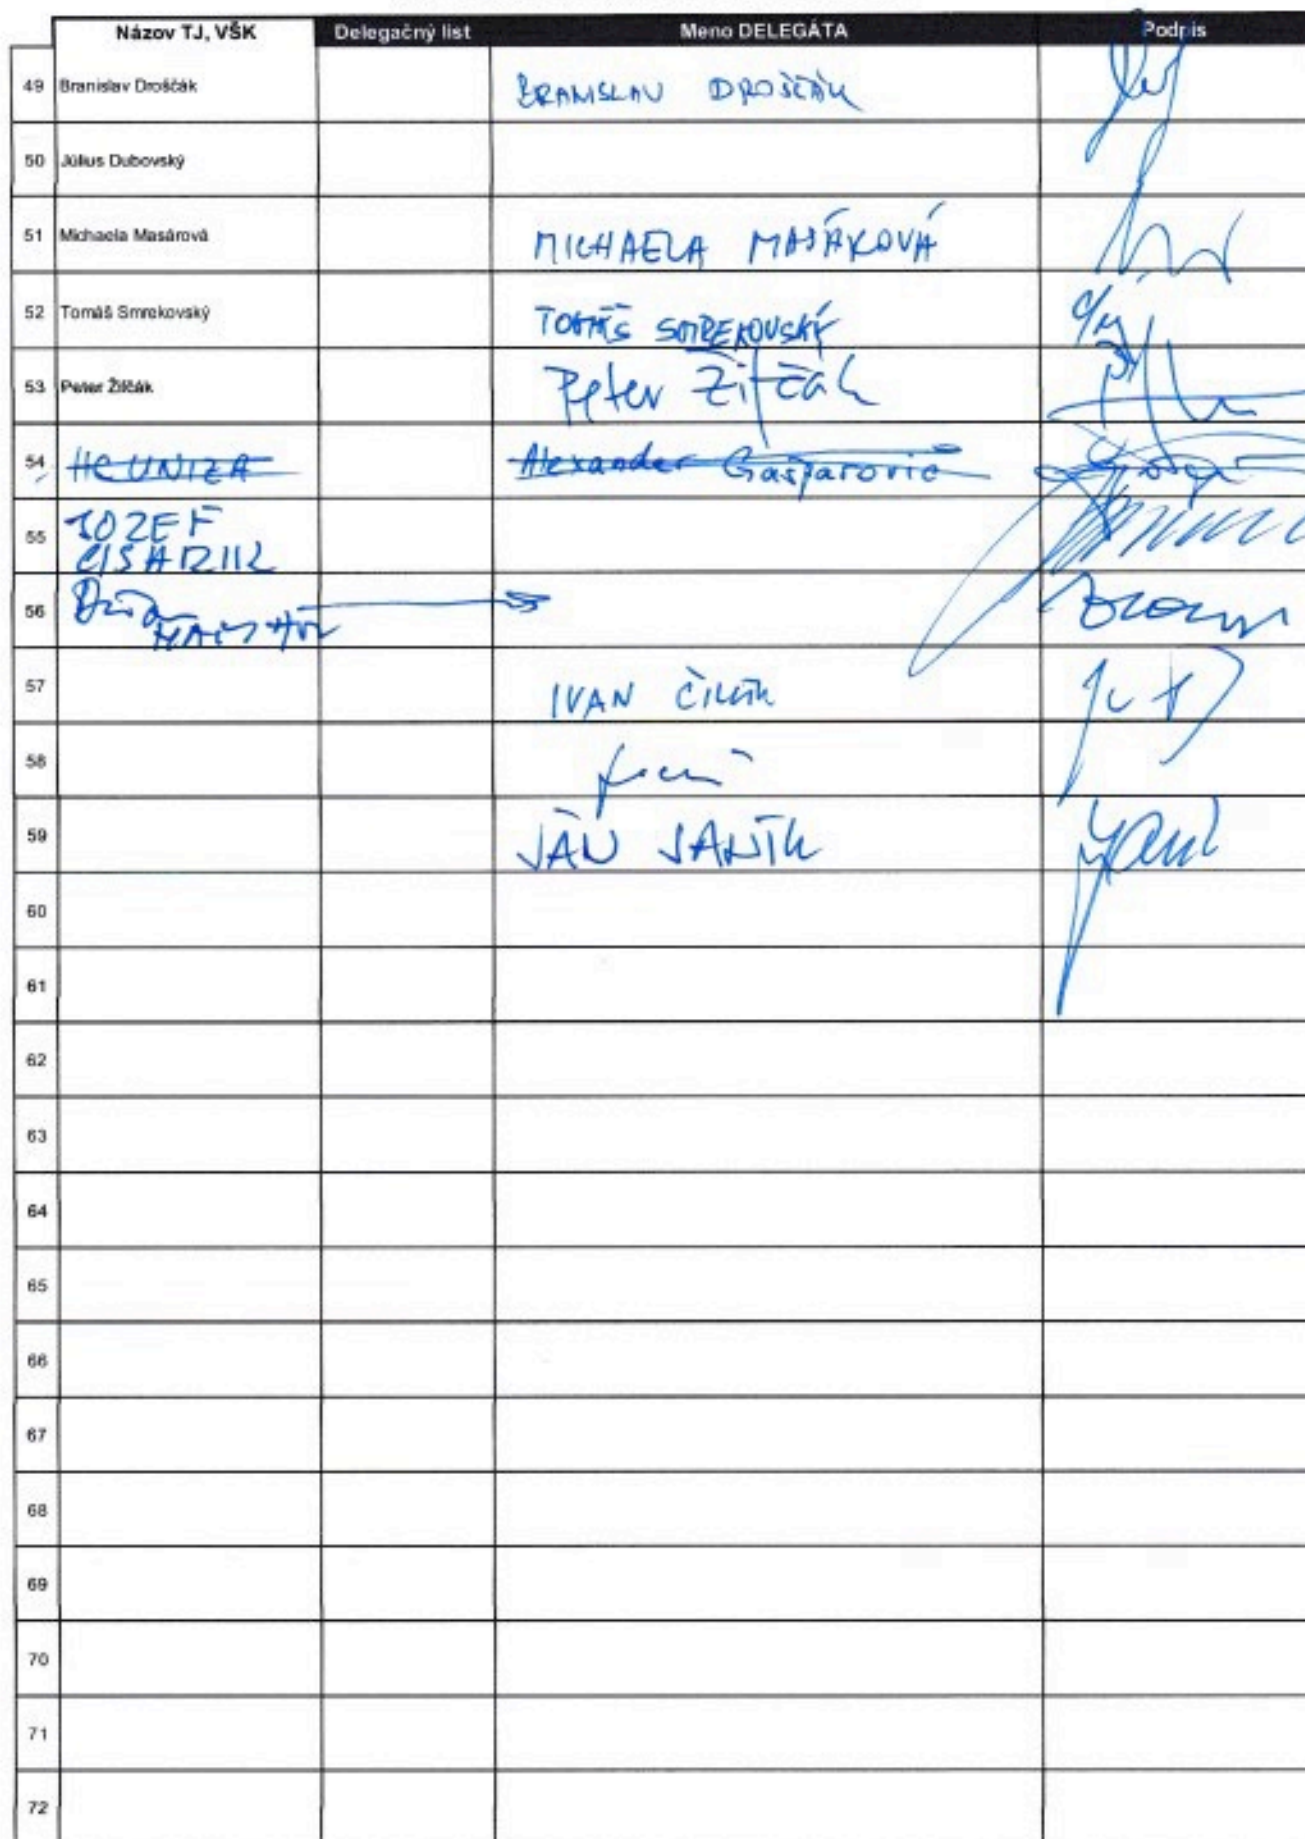 Názov TJ, VŠK Delegačný list Meno DELEGÁTA Podpis
49 Branislav Droščák BRANISLAV DROŠČÁK
50 Július Dubovský
51 Michaela Masárová MICHAELA MASÁROVÁ
52 Tomáš Smrekovský TOMÁŠ SMREKOVSKÝ
53 Peter Žifčák Peter Žifčák
54 HC UNIZA Alexander Gašparovič
55 JOZEF
CISARIK
56
57 IVAN ČILLÍK
58
59 JÁN JANÍK
60
61
62
63
64
65
66
67
68
69
70
71
72